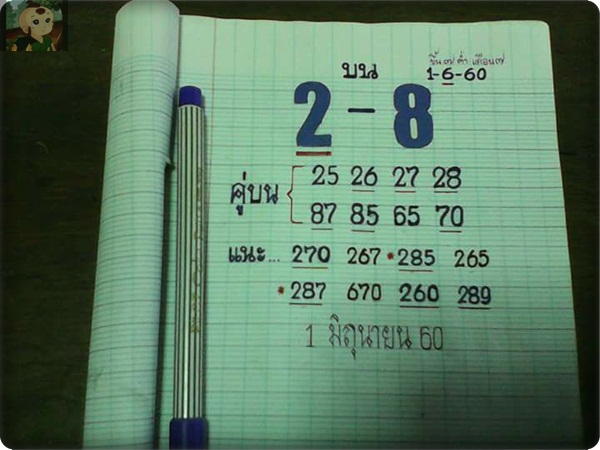 ขึ้น ๗ ค่ำ เดือน๗
บน 1-6-60
2-8
คู่บน { 25 26 27 28
87 85 65 70
แนะ... 270 267 *285 265
*287 670 260 289
1 มิถุนายน 60